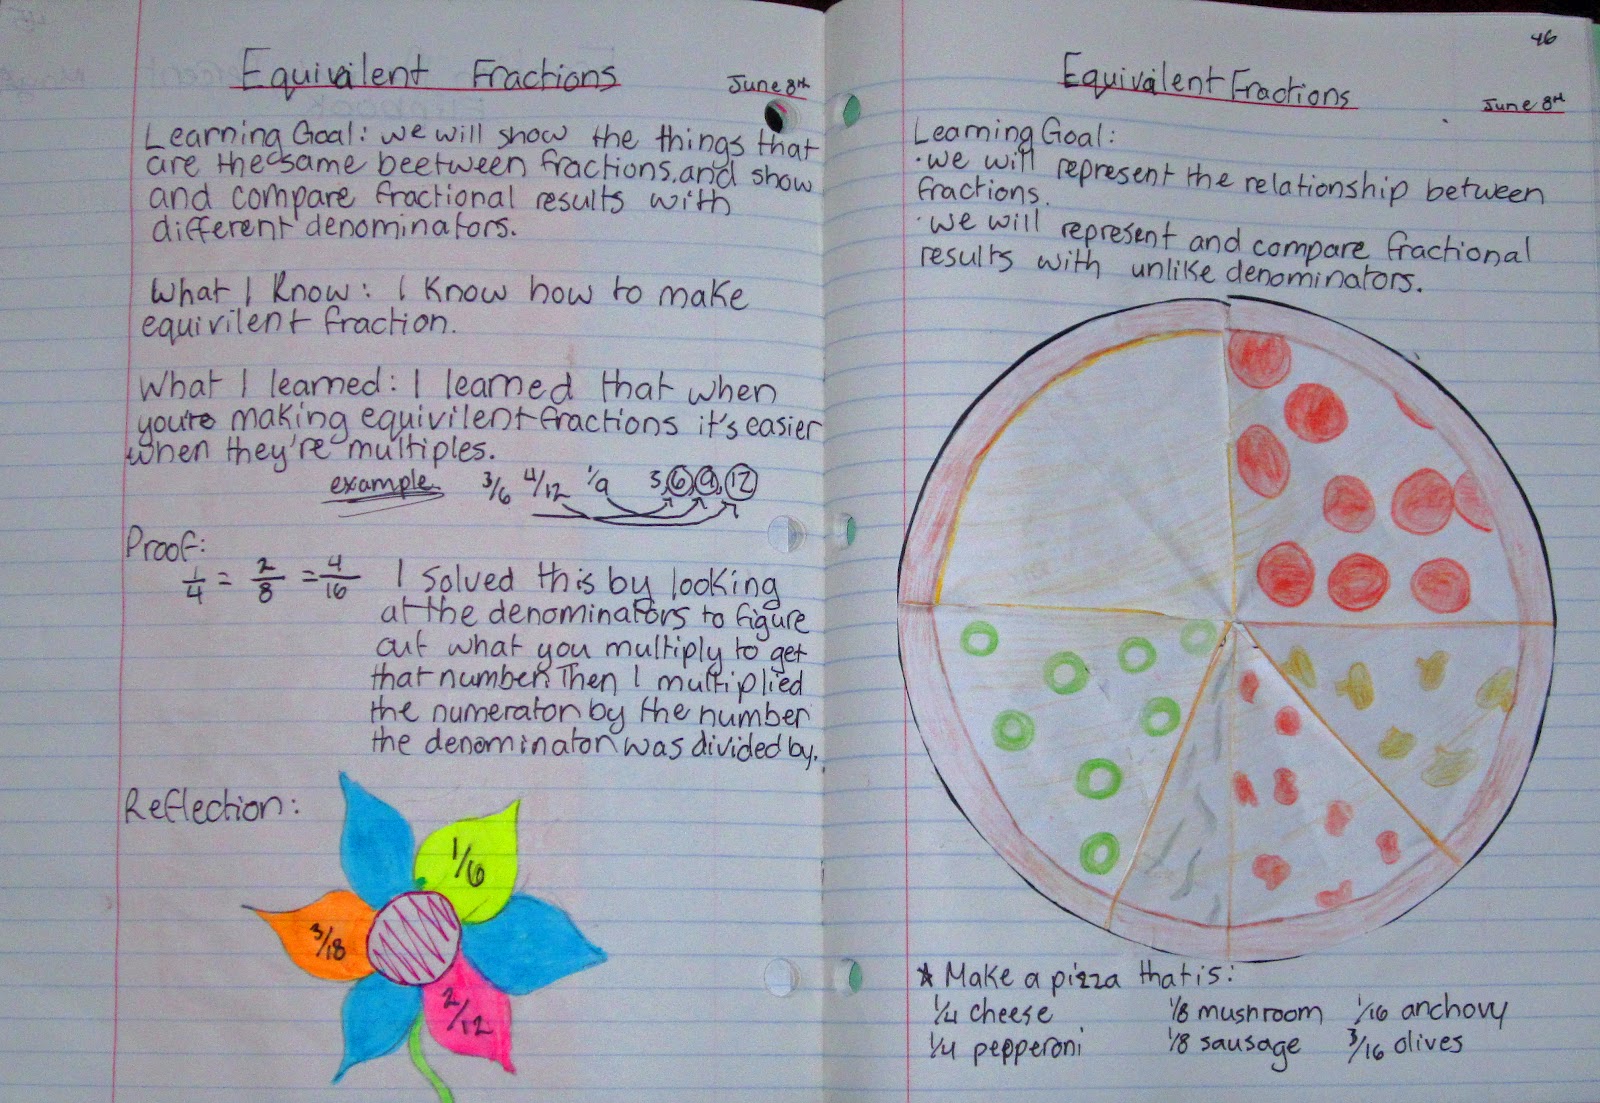 Equivalent Fractions
June 8th
Learning Goal: we will show the things that
are the same beetween fractions. and show
and compare fractional results with
different denominators.
What I Know: I Know how to make
equivilent fraction.
What I learned: I learned that when
you're making equivilent fractions it's easier
when they're multiples.
example 3/6 4/12 1/9 3, 6, 9, 12
Proof:
1/4 = 2/8 = 4/16
I solved this by looking
at the denominators to figure
out what you multiply to get
that number. Then I multiplied
the numerator by the number
the denominator was divided by.
Reflection:
1/6
3/18
2/12
46
Equivalent Fractions
June 8th
Learning Goal:
·we will represent the relationship between
fractions.
·we will represent and compare fractional
results with unlike denominators.
* Make a pizza that is:
1/4 cheese 1/8 mushroom 1/16 anchovy
1/4 pepperoni 1/8 sausage 3/16 olives